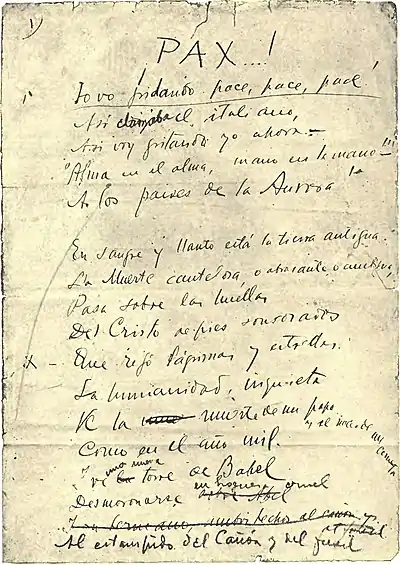 1)
PAX....!
Io vo gridando pace, pace, pace!
Así clamaba el italiano,
Así voy gritando yo ahora.—
"Alma en el alma, mano en la mano—!!!
A los países de la Aurora!"
En sangre y llanto está la tierra antigua.
La Muerte cautelosa o abrasante o ambigua,
Pasa sobre las huellas
Del Cristo de pies sonrosados
X — Que regó lágrimas y estrellas.
La humanidad, inquieta
Ve la muerte de un papa
y el nacer de un cometa
Como en el año mil.
Y ve una nueva torre de Babel
Desmoronarse en hoguera cruel
Al estampido del Cañón y del fusil